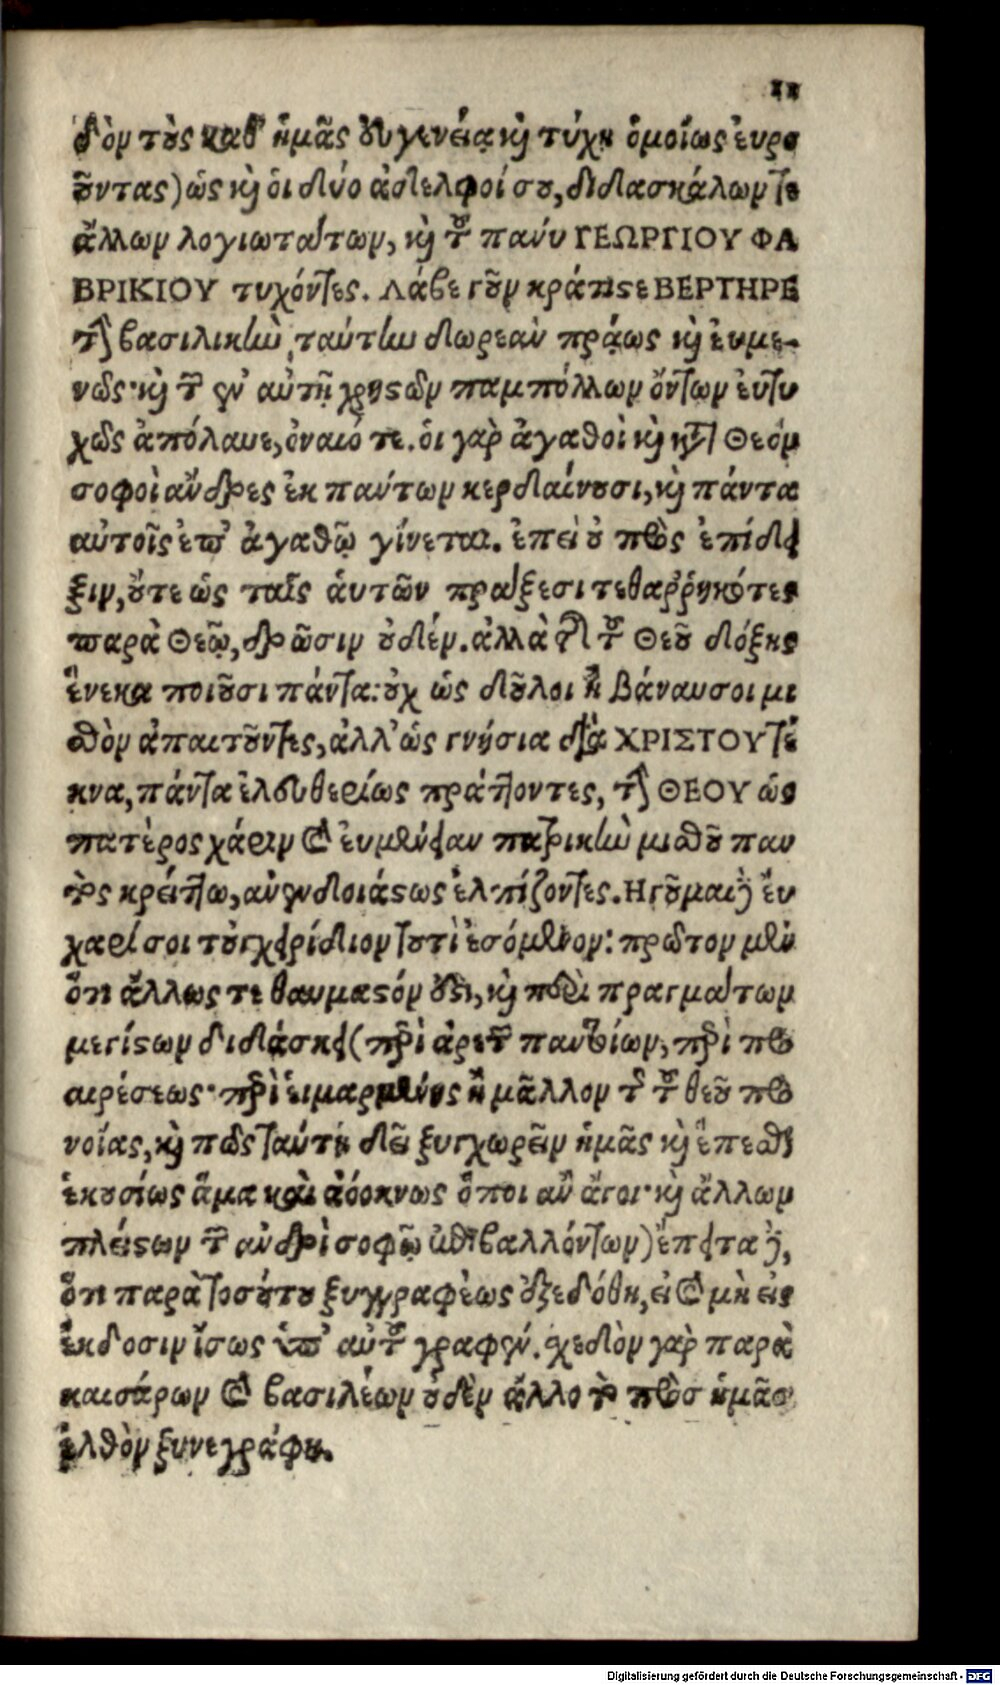 11
δὸν τοὺς καθ' ἡμᾶς εὐγενείᾳ καὶ τύχῃ ὁμοίως ἐυρο
οῦντας) ὡς καὶ ὁι δύο ἀδελφοί σου, διδασκάλων τε
ἄλλων λογιωτάτων, καὶ τοῦ πάνυ ΓΕΩΡΓΙΟΥ ΦΑ
ΒΡΙΚΙΟΥ τυχόντες. Λάβε γοῦν κράτιστε ΒΕΡΤΗΡΕ
τὴν βασιλικὴν ταύτην δωρεὰν πρᾴως καὶ ἐυμε-
νῶς· καὶ τῶν ἐν αὐτῇ χρηστῶν παμπόλλων ὄντων ἐυτυ
χῶς ἀπόλαυε, ὀναιό τε. ὁι γὰρ ἀγαθοὶ καὶ κατὰ Θεὸν
σοφοὶ ἄνδρες ἐκ πάντων κερδαίνουσι, καὶ πάντα
αὐτοῖς ἐπ' ἀγαθῷ γίνεται. ἐπεὶ οὐ πρὸς ἐπίδει
ξιν, οὔτε ὡς ταῖς ἁυτῶν πράξεσι τεθαῤῥηκότες
παρὰ Θεῷ, δρῶσιν οὐδέν. ἀλλὰ διὰ τοῦ Θεοῦ δόξης
ἕνεκα ποιοῦσι πάντα: οὐχ ὡς δοῦλοι ἢ βάναυσοι μι
σθὸν ἀπαιτοῦντες, ἀλλ' ὡς γνήσια διὰ ΧΡΙΣΤΟΥ τέ
κνα, πάντα ἐλευθερίως πράττοντες, τὴν ΘΕΟΥ ὡς
πατὲρος χάριν καὶ ἐυμένειαν πατρικὴν μισθοῦ παν
τὸς κρείττω, ἀνενδοιάστως ἐλπίζοντες. Ηγοῦμαι δὲ ἔυ
χαρί σοι τὸ ἐγχειρίδιον τουτὶ ἐσόμενον: πρῶτον μὲν
ὅτι ἄλλως τε θαυμαστόν ἐστι, καὶ περὶ πραγμάτων
μεγίστων διδάσκει (περὶ ἀρετῶν παντοίων, περὶ προ
αιρέσεως· περὶ ἑιμαρμένης ἢ μᾶλλον τῆς τοῦ θεοῦ προ
νοίας, καὶ πῶς ταύτῃ δεῖ ξυγχωρεῖν ἡμᾶς καὶ ἕπεσθαι
ἑκουσίως ἅμα καὶ ἀόκνως ὅποι ἂν ἄγοι· καὶ ἄλλων
πλείστων τῶν ἀνδρὶ σοφῷ ἐπιβαλλόντων) ἔπειτα δὲ,
ὅτι παρὰ τοσούτου ξυγγραφέως ἐξεδόθη, εἰ καὶ μὴ εἰς
ἔκδοσιν ἴσως ὑπ' αὐτοῦ γραφέν. σχεδὸν γὰρ παρὰ
καισάρων καὶ βασιλέων οὐδὲν ἄλλο τὸ πρὸς ἡμᾶς
ἐλθὸν ξυνεγράφη.
Digitalisierung gefördert durch die Deutsche Forschungsgemeinschaft - DFG